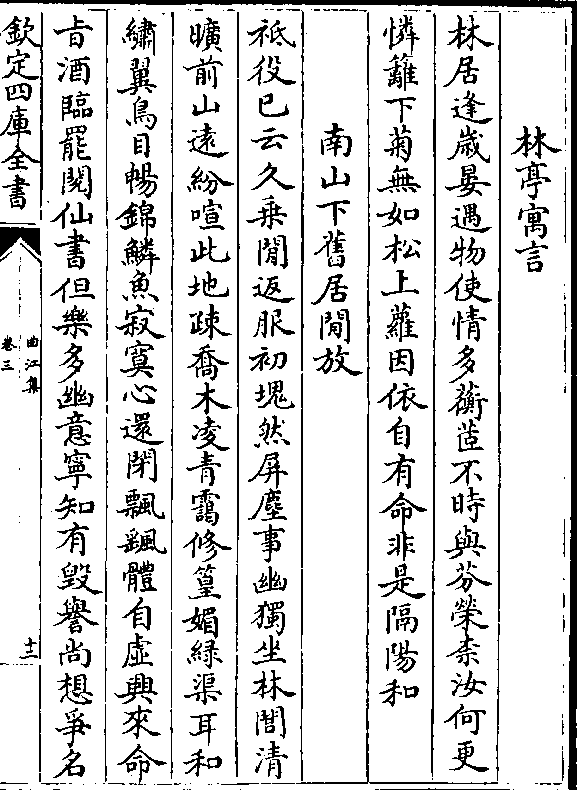 林亭寓言
林居逢歲晏遇物使情多蘅茝不時與芬榮柰汝何更
憐籬下菊無如松上蘿因依自有命非是隔陽和
南山下舊居閒放
祗役已云久乗閒返服初塊然屏塵事幽獨坐林閭清
曠前山逺紛喧此地疎喬木凌青靄修篁媚緑渠耳和
繡翼鳥目暢錦鱗魚寂寞心還閉飄颻體自虛興來命
㫖酒臨罷閱仙書但樂多幽意寧知有毀譽尚想爭名
欽定四庫全書
曲江集
卷三
十二